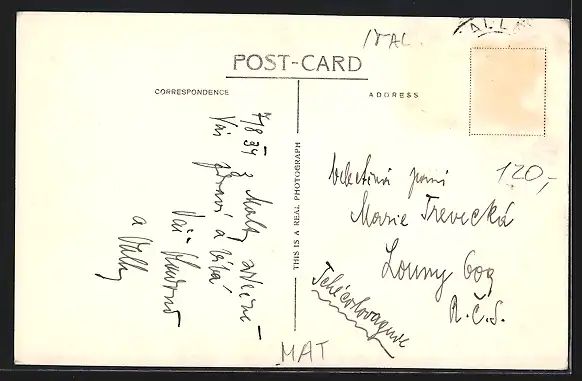 ITAL.
POST-CARD
CORRESPONDENCE
ADDRESS
7/8 34 z Malty srdečně
Vás zdraví a líbá
Váš
a Villy
THIS IS A REAL PHOTOGRAPH
120,-
Velectěná paní
Marie Trevecká
Louny 609
R.Č.S.
Tchécoslovaquie
MAT